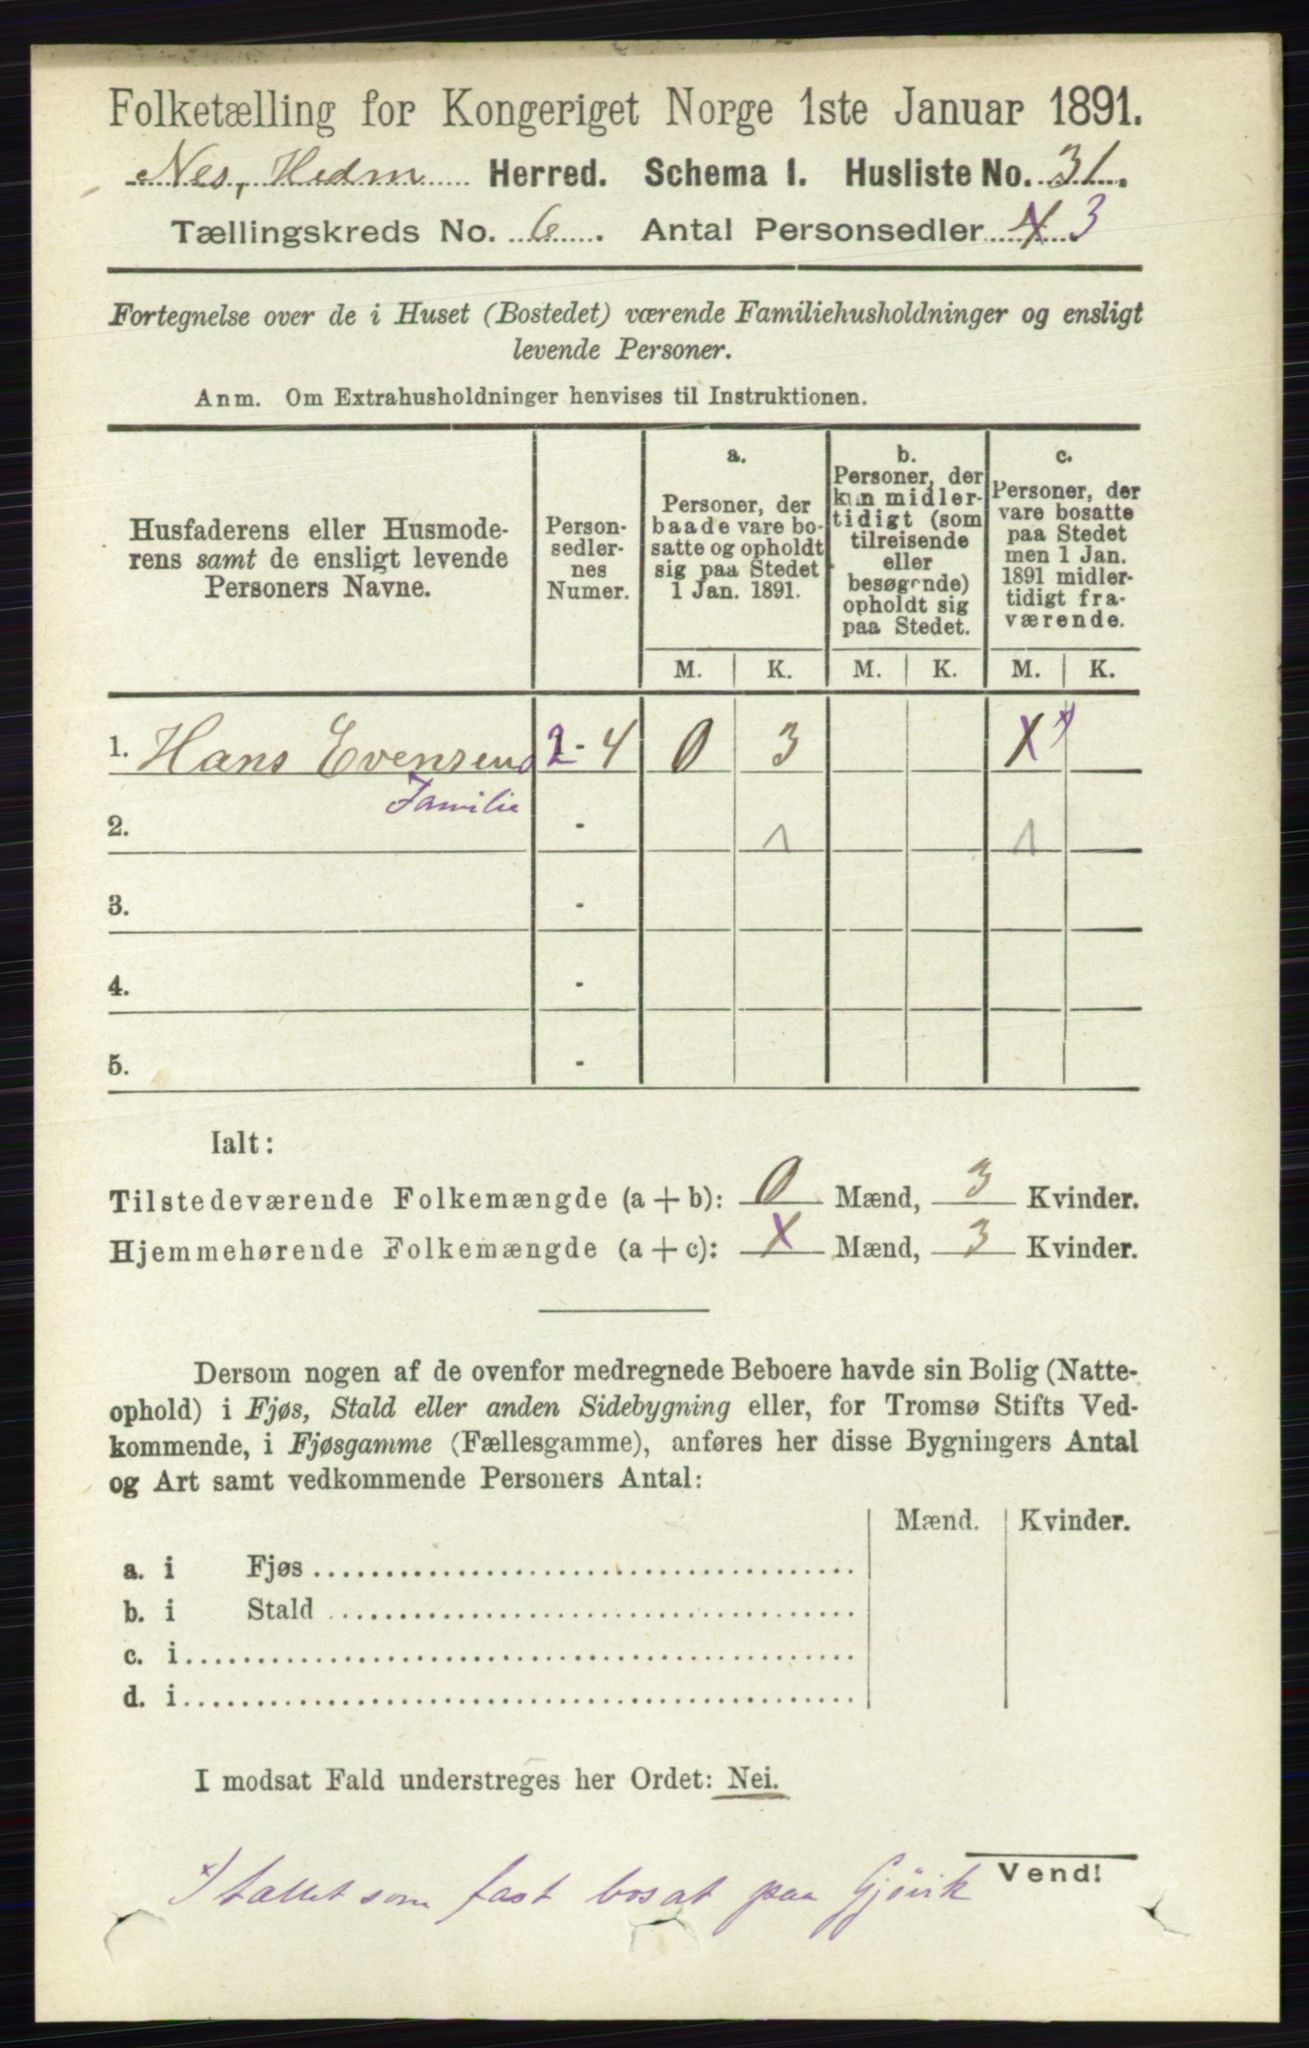 Folketælling for Kongeriget Norge 1ste Januar 1891.
Nes, Hedm Herred. Schema I. Husliste No. 31.
Tællingskreds No. 6. Antal Personsedler 4 3
Fortegnelse over de i Huset (Bostedet) værende Familiehusholdninger og ensligt
levende Personer.
Anm. Om Extrahusholdninger henvises til Instruktionen.
Husfaderens eller Husmode-
rens samt de ensligt levende
Personers Navne.
Person-
sedler-
nes
Numer.
a.
Personer, der
baade vare bo-
satte og opholdt
sig paa Stedet
1 Jan. 1891.
b.
Personer, der
kun midler-
tidigt (som
tilreisende
eller
besøgende)
opholdt sig
paa Stedet.
c.
Personer, der
vare bosatte
paa Stedet
men 1 Jan.
1891 midler-
tidigt fra-
værende.
M. K. M. K. M. K.
1. Hans Evensens 2-4 0 3 X x)
Familie
2. - 1 1
3. -
4. -
5. -
Ialt:
Tilstedeværende Folkemængde (a + b): 0 Mænd, 3 Kvinder.
Hjemmehørende Folkemængde (a + c): X Mænd, 3 Kvinder.
Dersom nogen af de ovenfor medregnede Beboere havde sin Bolig (Natte-
ophold) i Fjøs, Stald eller anden Sidebygning eller, for Tromsø Stifts Ved-
kommende, i Fjøsgamme (Fællesgamme), anføres her disse Bygningers Antal
og Art samt vedkommende Personers Antal:
Mænd. Kvinder.
a. i Fjøs
b. i Stald
c. i
d. i
I modsat Fald understreges her Ordet: Nei.
Vend!
x) tallet som fast bosat paa Gjövik